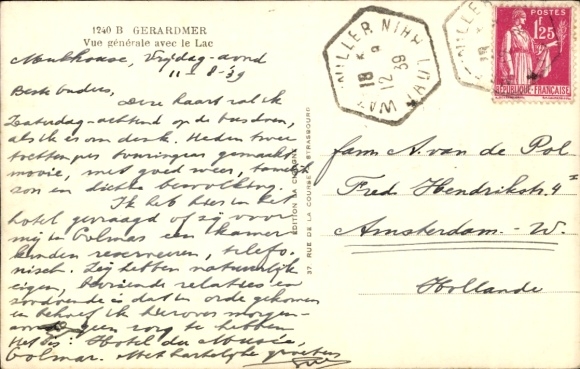 1240 B GERARDMER
Vue générale avec le Lac
Mulhouse, Vrijdag-avond
11-8-39
Beste ouders,
Deze kaart zal ik
Zaterdag-ochtend op de bus doen,
als ik er om denk. Heden twee
tochten per gemaakt
mooie, met goed weer,
zon en bevolking.
Ik heb hier in het
hotel gevraagd of zij voor
mij in Colmar een kamer
konden reserveeren, telefo-
nisch. Zij hebben natuurlijk
eigen, relaties en
is dat in orde gekomen
en behoef ik hierover morgen-
avond geen zorg te hebben
Het is: Hotel du Musée,
Colmar. Met hartelijke groeten
EDITION
37 RUE DE LA COURSE STRASBOURG
18
12
39
POSTES
1F25
REPUBLIQUE FRANÇAISE
fam A. van de Pol
Fred. Hendrikstr. 4
Amsterdam-W.
Hollande